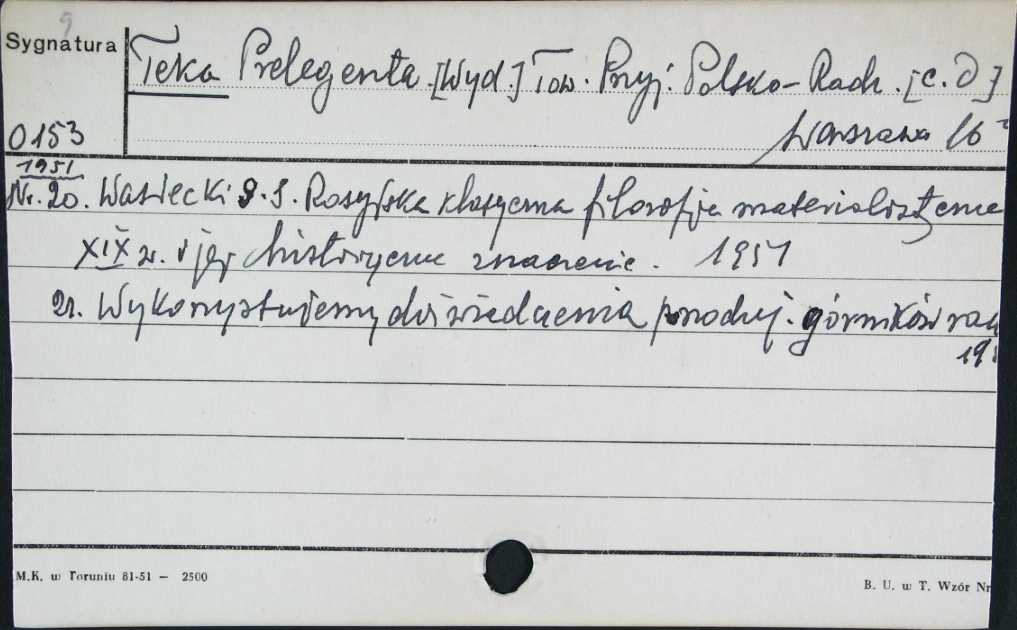 9
Sygnatura
Teka Prelegenta. [Wyd.] Tow. Przyj. Polsko-Radz. [c.d]
0153
Warszawa 16°
1951
Nr. 20. Wasiecki S. S. Rosyjska klasyczna filozofia materialistyczna
XIX w. i jej historyczne znaczenie. 1951
21. Wykorzystujemy doświadczenia przoduj. górników rad
195
M.K. w Toruniu 81-51 — 2500
B. U. w T. Wzór Nr